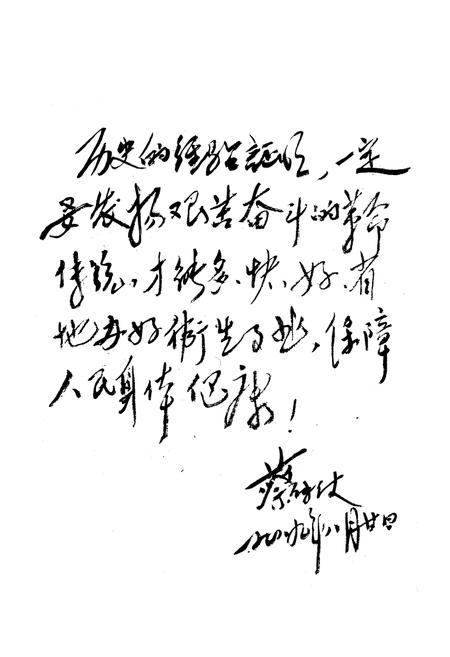 历史的经验証明，一定
要发扬艰苦奋斗的革命
传统，才能多、快、好、省
地办好衛生事业，保障
人民身体健康！
蔡
年八月廿日